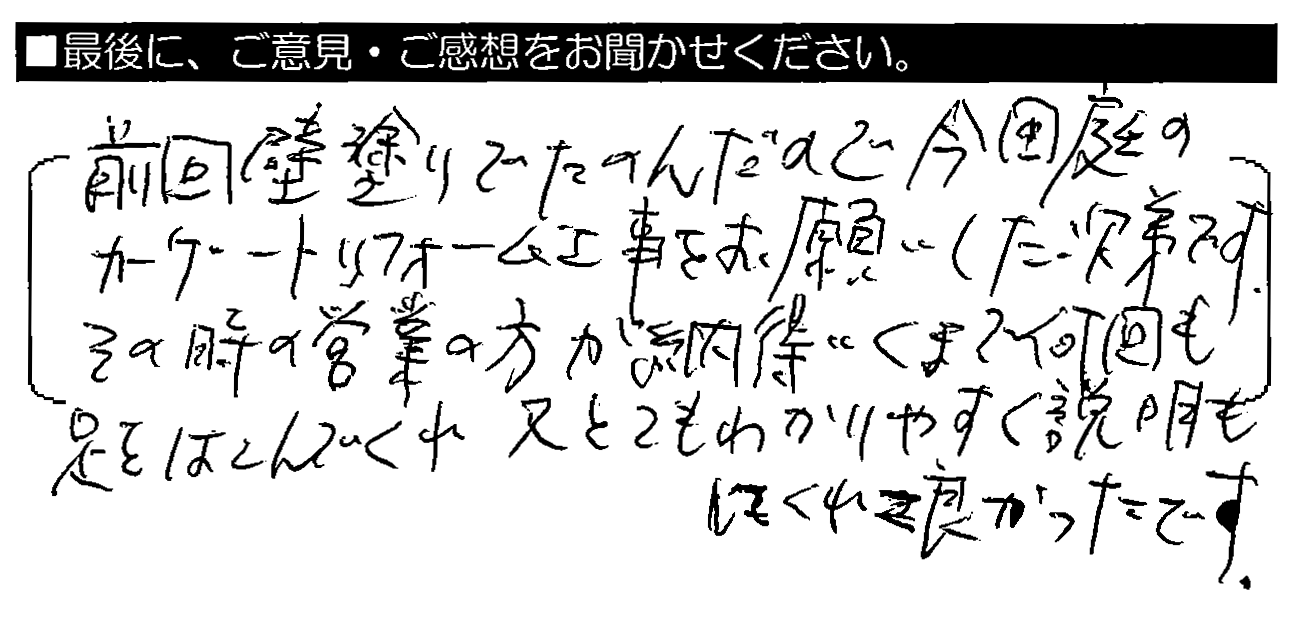 ■最後に、ご意見・ご感想をお聞かせください。
前回壁塗りでたのんだので今回庭の
カーゲートリフォーム工事をお願いした次第です.
その時の営業の方が納得いくまで何回も
足をはこんでくれ 又とてもわかりやすく説明も
してくれて良かったです.